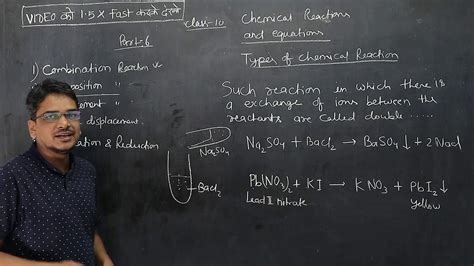 VIDEO को 1.5 X Fast करके देखो
Class-10
Chemical Reactions
and equations
Part-6
Types of chemical Reaction
1) Combination Reaction
position "
ement "
displacement.
ation & Reduction
Such reaction in which there is
a exchange of ions between the
reactants are called double .....
Na₂SO₄ + BaCl₂ → BaSO₄↓ + 2 NaCl
Na₂SO₄
BaCl₂
Pb(NO₃)₂ + KI → KNO₃ + PbI₂↓
Lead II nitrate
yellow